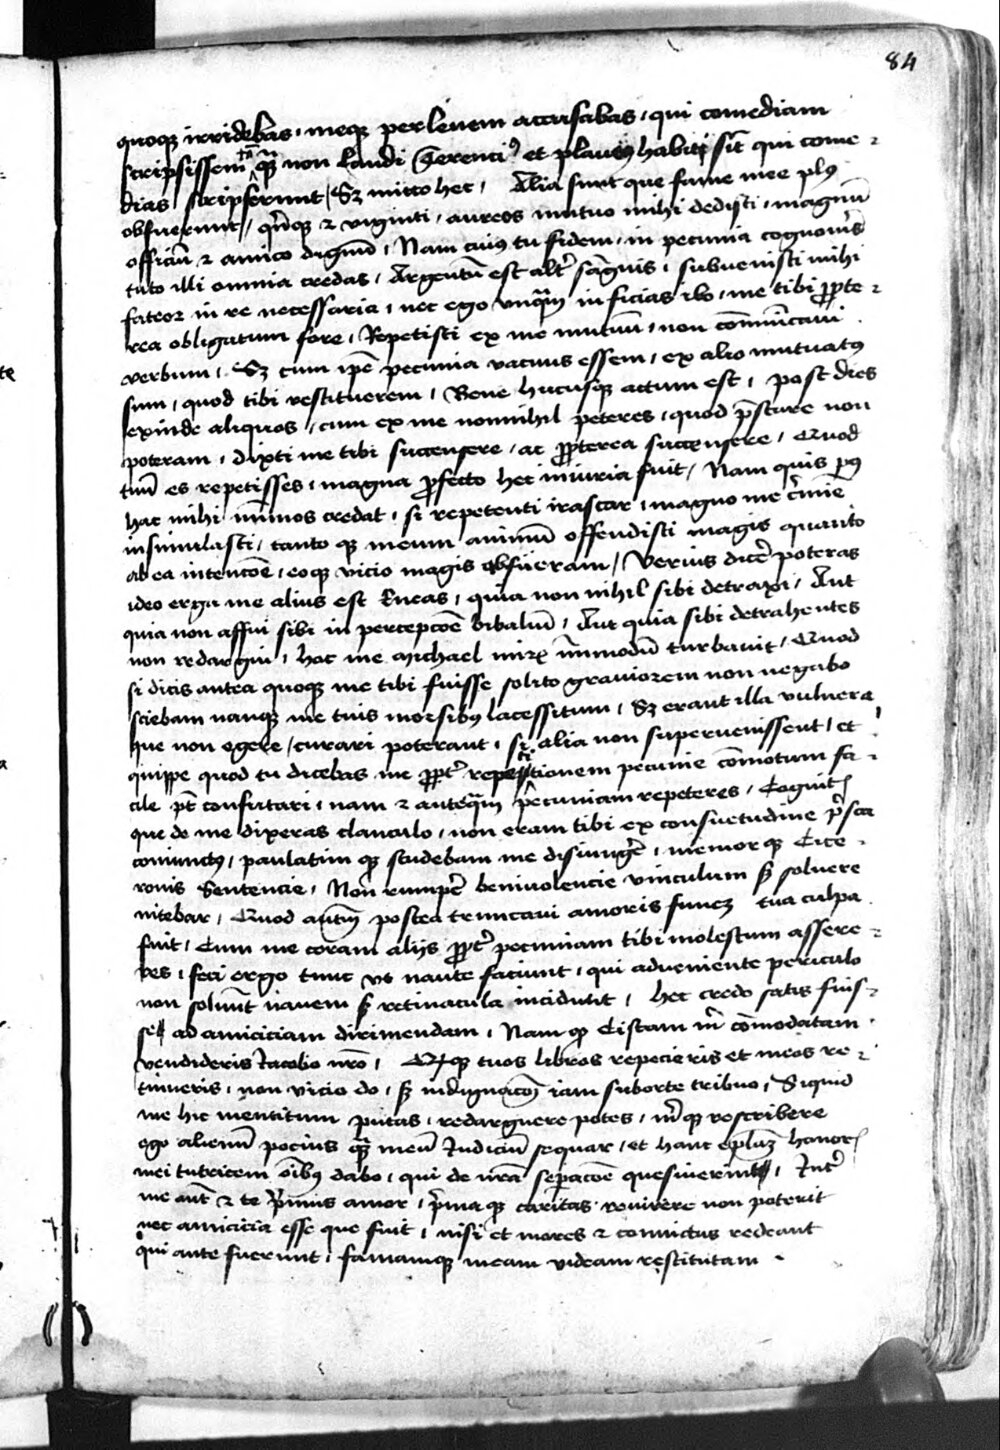 84
quoq3 irridebas, meq3 per levem accusabas, qui comediam
scripsissem, tāq̃ non laudi Terenciꝰ et plautꝰ habiti sīt qui come-
dias scripserunt, Sz mitto hec, Alia sunt que fame mee plꝰ
obfuerunt, qn̄q3 & viginti, aureos mutuo mihi dedisti, magnū
officiū & amico dignū, Nam cuiꝰ tu fidem, in pecunia cognoūis
tuto illi omnia credas, Argentū est alt̄ sāguis, subvenisti mihi
fateor in re necessaria, nec ego vnq̃m in ficias ibo, me tibi ꝓpte-
rea obligatum fore, Repetisti ex me mutuū, non cōmūtavi
verbum, Sz cum ip̄e pecunia vacuus essem, ex alio mutuatꝰ
sum, quod tibi restituerem, Bene hucusq3 actum est, post dies
exinde aliquos, cum ex me nonnihil peteres, quod p̄stare non
poteram, dixti me tibi succensere, ac ꝓpterea succensere, Quod
tuū es repetisses, magna ꝓfecto hec iniuria fuit, Nam quis pꝰ
hac mihi nūmos credat, si repetenti irascar, magno me c̄mine
insimulasti, tanto q3 meum animū offendisti magis quanto
ab ea intencōe, eoq3 vicio magis abfueram, Verius dic̄e poteras
ideo erga me alius est Lucas, quia non nihil sibi detraxi, Aut
quia non affui sibi in percepcōe bibaliū, Aut quia sibi detrahentes
non redargui, hoc me Michael mirū īmodū turbavit, Quod
si dicis antea quoq3 me tibi fuisse solito graviorem non negabo
sciebam nanq3 me tuis morsibꝰ lacessitum, Sz erant illa vulnera
que non egere, curari poterant, si alia non supervenissent, et
quippe quod tu dicebas me ꝓpt̄ repetitionem pecunie cōmotum fa-
cile pt̄ confutari, nam & anteq̃m pecuniam repeteres, Cognitis
que de me dixeras clanculo, non eram tibi ex consuetudine p̄sca
coniunctꝰ, paulatim q3 studebam me disiunḡe, memor q3 Cice-
ronis Sentencie, Non rump̄e benivolencie vinculum sz solvere
nitebar, Quod aut̄m postea truncavi amoris funez tua culpa
fuit, Cum me coram alijs ꝓpt̄ pecuniam tibi molestum assere-
res, feci ergo tunc vt naute faciunt, qui adveniente periculo
non solvūt navem sz retinacula incidunt, hec credo satis fuis-
se ad amiciciam dirimendam, Nam qꝙ Cistam m̄ cōmodatam
vendideris Jacobo nr̄o, Qꝙq3 tuos libros repecieris et meos re-
tinueris, non vicio do, sz indignacōi iam suborte tribuo, Siquid
me hic mentitum putas, redarguere potes, m̄ q3 rescribere
ego alienū pocius q̃ meū Judiciū sequar, et hanc ep̄laz honor
mei tutricem oībꝰ dabo, qui de nr̄a sep̄acōe quesiverint, Int̄
me aūt & te p̄mus amor, p̄ma q3 caritas reviuere non poterit
nec amicicia esse que fuit, nisi et mores & convictus redeant
qui ante fuerunt, famamq3 meam videam restitutam .